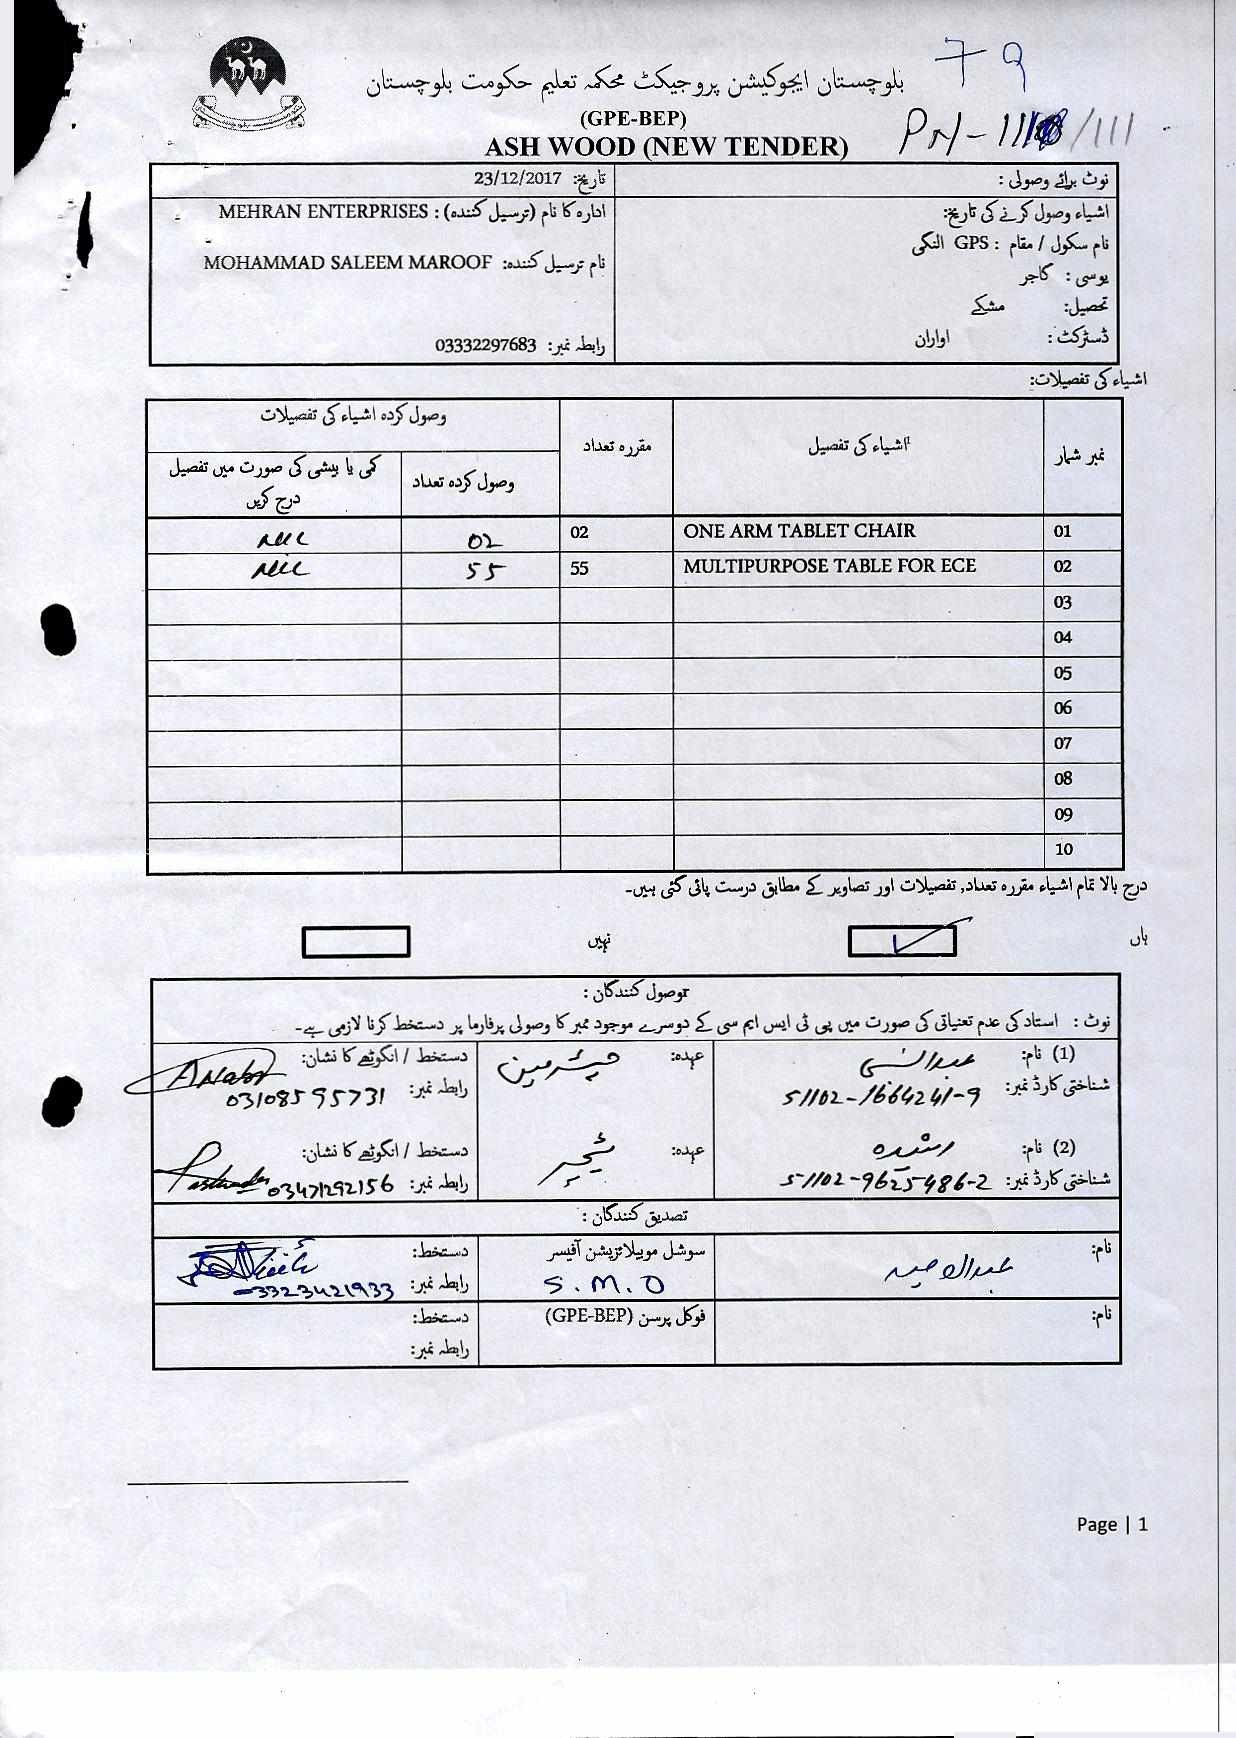 79
بلوچستان ایجوکیشن پروجیکٹ محکمہ تعلیم حکومت بلوچستان
(GPE-BEP)
ASH WOOD (NEW TENDER)
/111
نوٹ برائے وصولی :
تاریخ: 23/12/2017
اشیاء وصول کرنے کی تاریخ:
نام سکول / مقام : GPS النگی
یوسی : گاجر
تحصیل: مشکے
ڈسٹرکٹ : اواران
ادارہ کا نام (ترسیل کنندہ) : MEHRAN ENTERPRISES
نام ترسیل کنندہ: MOHAMMAD SALEEM MAROOF
رابطہ نمبر: 03332297683
اشیاء کی تفصیلات:
نمبر شمار اشیاء کی تفصیل مقررہ تعداد وصول کردہ اشیاء کی تفصیلات
وصول کردہ تعداد کمی یا بیشی کی صورت میں تفصیل درج کریں
01 ONE ARM TABLET CHAIR 02 02 NIL
02 MULTIPURPOSE TABLE FOR ECE 55 55 NIL
03
04
05
06
07
08
09
10
درج بالا تمام اشیاء مقررہ تعداد, تفصیلات اور تصاویر کے مطابق درست پائی گئی ہیں۔
ہاں نہیں
وصول کنندگان :
نوٹ : استاد کی عدم تعنیاتی کی صورت میں پی ٹی ایس ایم سی کے دوسرے موجود ممبر کا وصولی پرفارما پر دستخط کرنا لازمی ہے۔
(1) نام: عبدالنبی
شناختی کارڈ نمبر: 51102-1664241-9
عہدہ: چیئرمین
دستخط / انگوٹھے کا نشان: ANabi
رابطہ نمبر: 03108595731
(2) نام: رشیدہ
شناختی کارڈ نمبر: 51102-9625486-2
عہدہ: ٹیچر
دستخط / انگوٹھے کا نشان:
رابطہ نمبر: 03471292156
تصدیق کنندگان :
نام: عبدالوحید
سوشل موبیلائزیشن آفیسر
S.M.O
دستخط:
رابطہ نمبر: 03323421933
نام:
فوکل پرسن (GPE-BEP)
دستخط:
رابطہ نمبر:
Page | 1